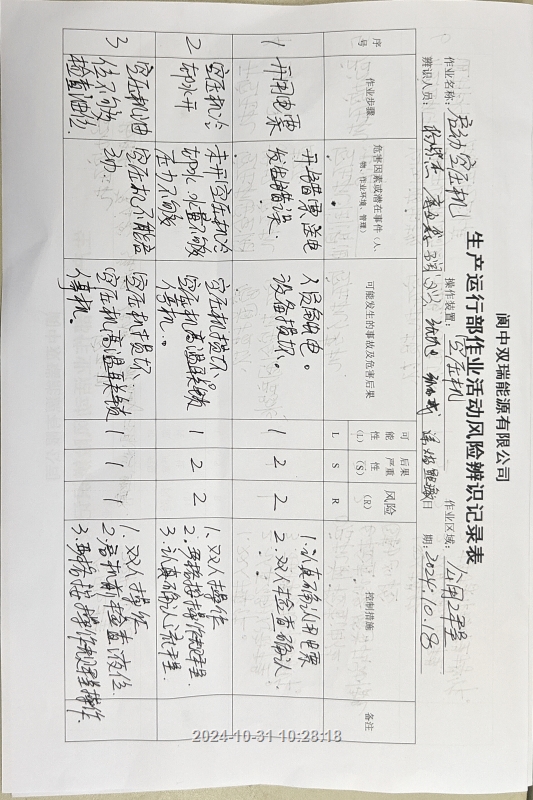 阆中双瑞能源有限公司
生产运行部作业活动风险辨识记录表
作业名称：启动空压机 操作装置：空压机 作业区域：公用工程
辨识人员： 日期：2024.10.18
序号 作业步骤 危害因素或潜在事件（人、物、作业环境、管理） 可能发生的事故及危害后果 可能性（L） 后果严重性（S） 风险（R） 控制措施 备注
L S R
1 开用电票 开错票送电发生错误. 人员触电。设备损坏。 1 2 2 1.认真确认用电票
2.双人检查确认.
2 空压机冷却水开 未开空压机冷却水,水量不够压力不够 空压机损坏 空压机高温联锁停机。 1 2 2 1.双人操作
2.严格按操作规程.
3.认真确认流程.
3 空压机油位不够检查油位. 空压机不能启动. 空压机损坏. 空压机高温联锁停机. 1 1 1 1.双人操作
2.启机前检查液位.
3.严格按操作规程操作.
2024-10-31 10:28:18